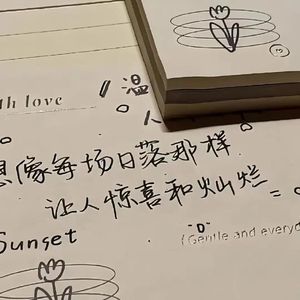 温
th love
想像每场日落那样
让人惊喜和灿烂
Sunset
"D"
(Gentle and everyd